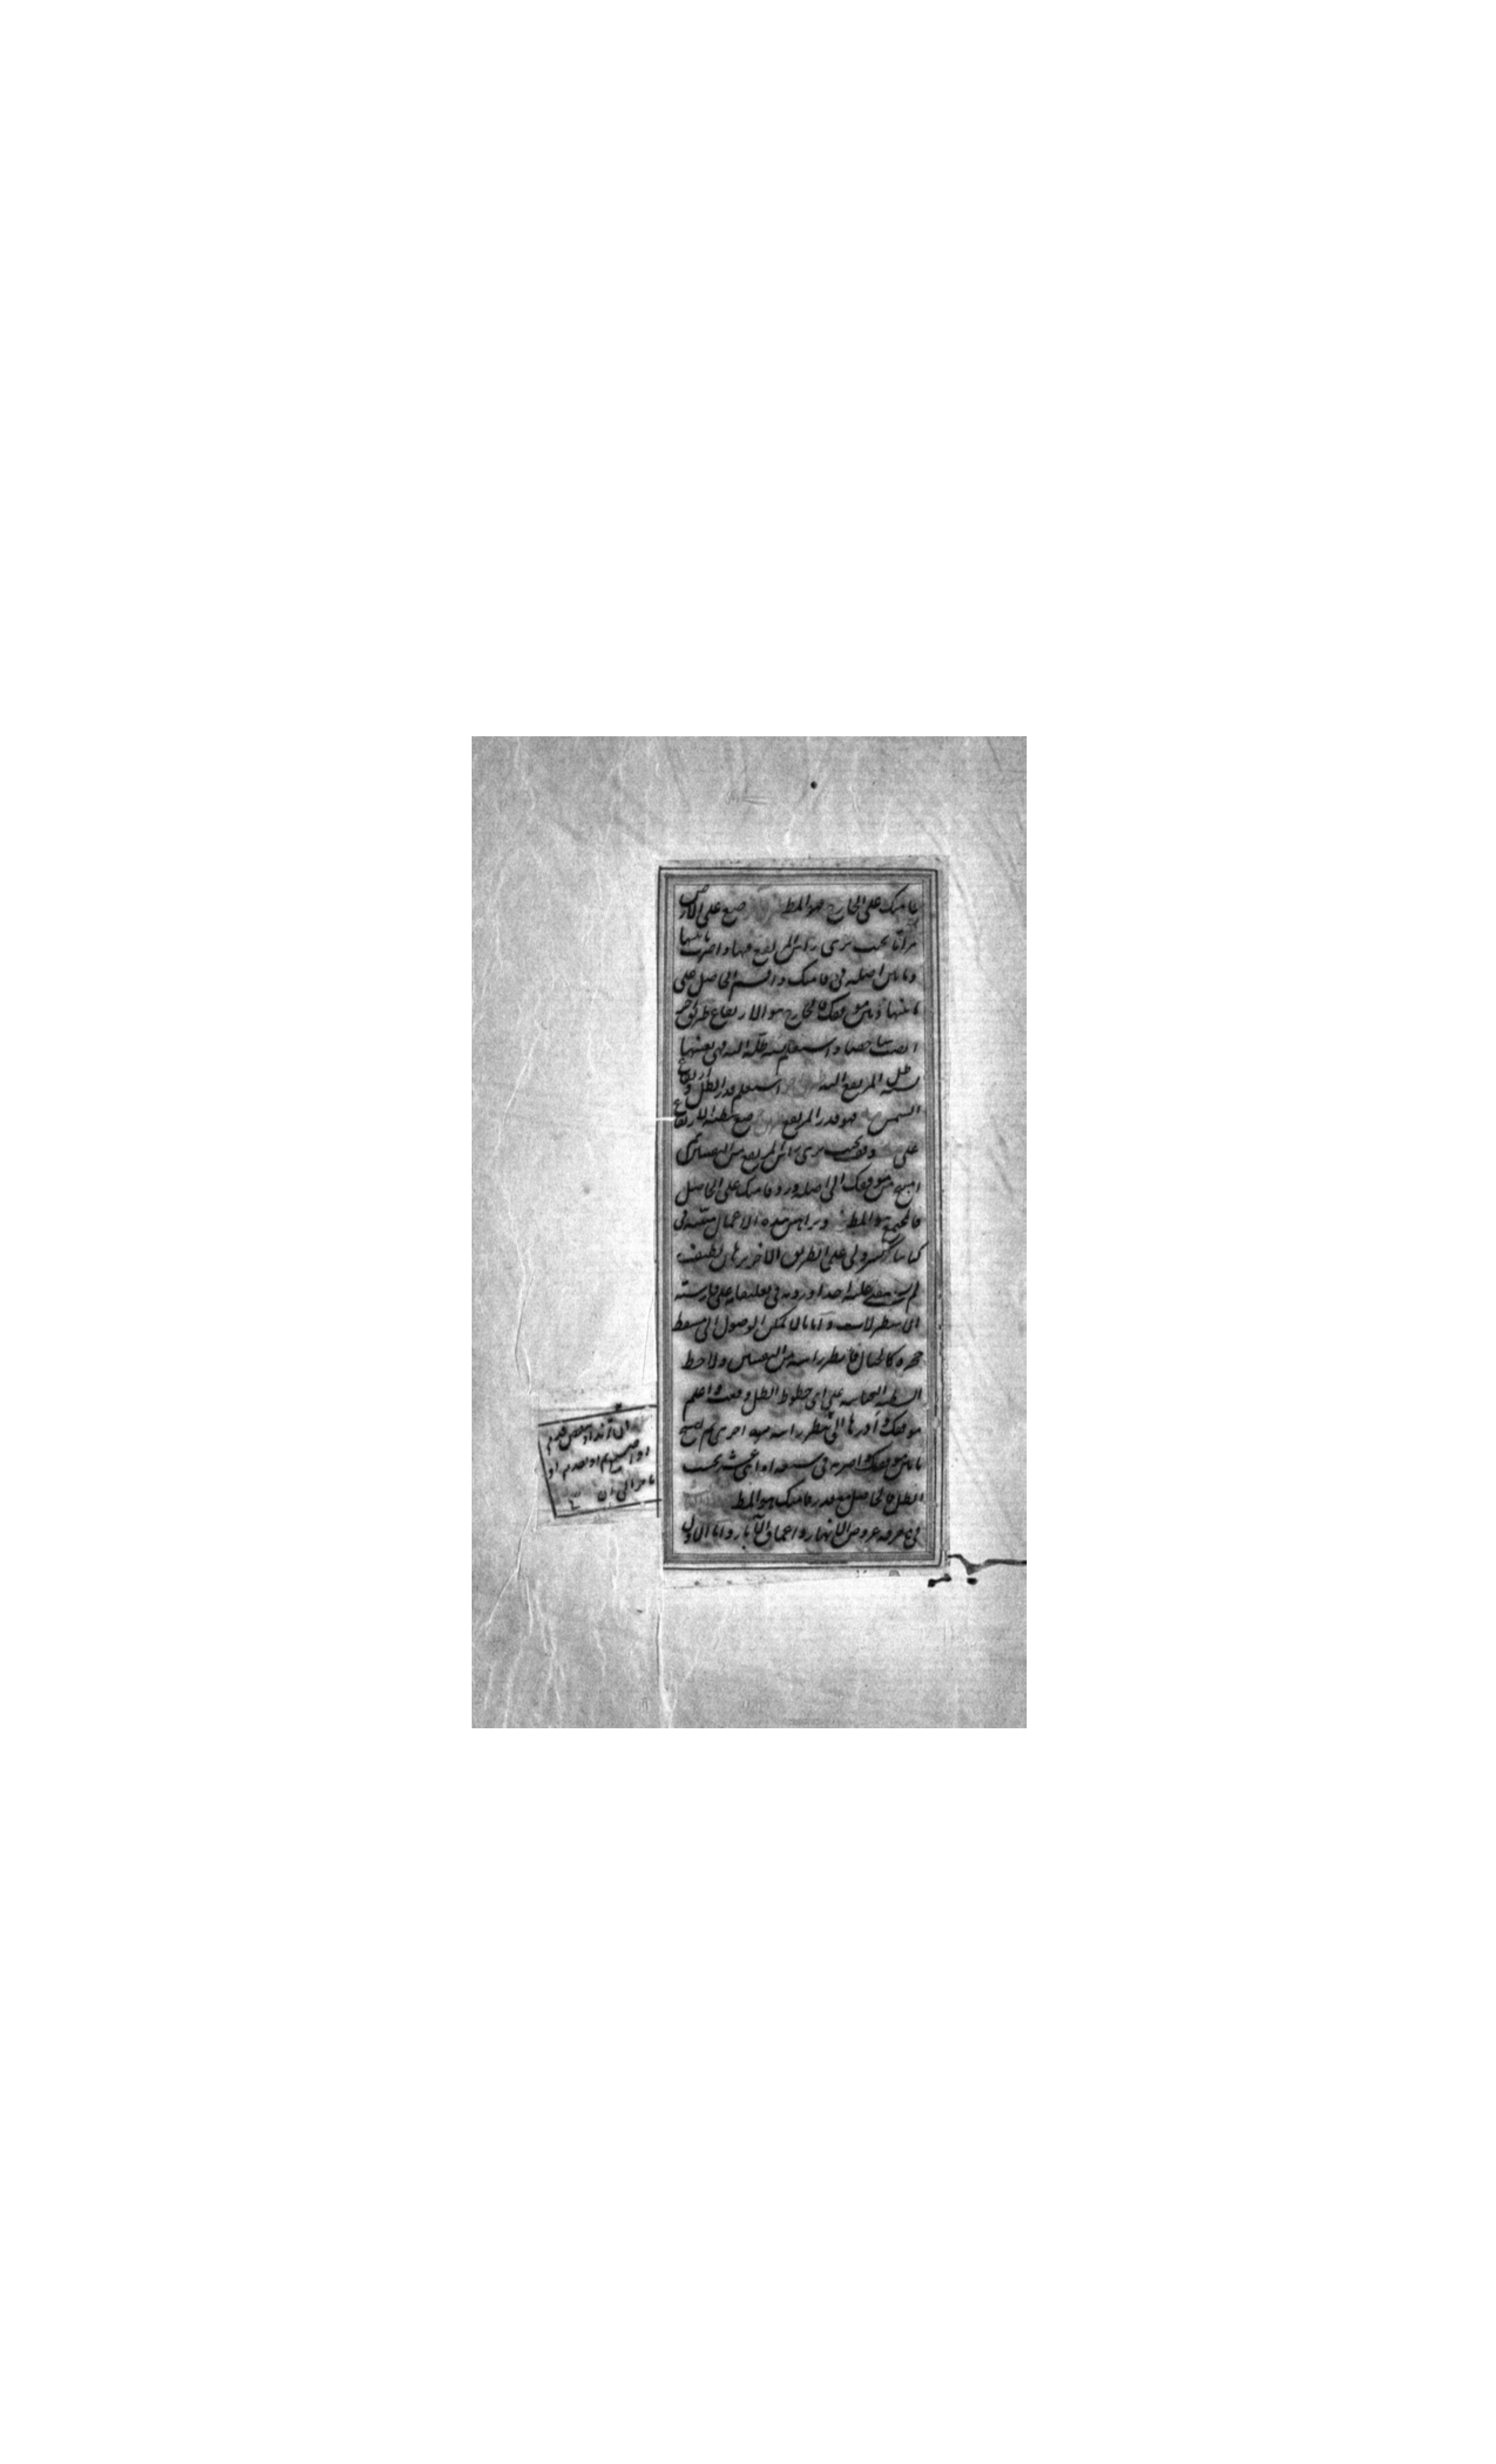 قامتك على الخارج هو المط ضع على الارض
مرآة بحيث ترى راس المرتفع فيها واضرب ما بينها
وما بين اصله في قامتك واقسم الحاصل على
ما بينها وبين موقفك فالخارج هو الارتفاع طريق آخر
انصب شاخصا واستعلم نسبة ظله اليه فهي بعينها
نسبة ظل المرتفع اليه استعلم قدر الظل وارتفاع
الشمس فهو قدر المرتفع ضع شظية الارتفاع
على وقف بحيث ترى راس المرتفع من الثقبتين ثم
امسح من موقفك الى اصله وزد قامتك على الحاصل
فالمجتمع هو المط وبراهين هذه الاعمال مبينة في
كتابنا الكبير ولي على الطريق الاخير برهان لطيف
لم يسبقني عليه احد اوردته في تعليقاتي على فارسية
الاسطرلاب واما ما لا يمكن الوصول الى مسقط
حجره كالجبال فانظر راسه من الثقبتين ولاحظ
الشظية التحتانية على اي خطوط الظل وقعت واعلم
موقفك وادرها الى ان تنظر راسه مرة اخرى ثم امسح
ما بين موقفيك واضربه في سبعة او اثني عشر بحسب
الظل فالحاصل مع قدر قامتك هو المط
في معرفة عروض الانهار واعماق الآبار واما الاول
الى ان تزيد او تنقص قدم
او اصبع ثم تقدم او
تاخر الى ان